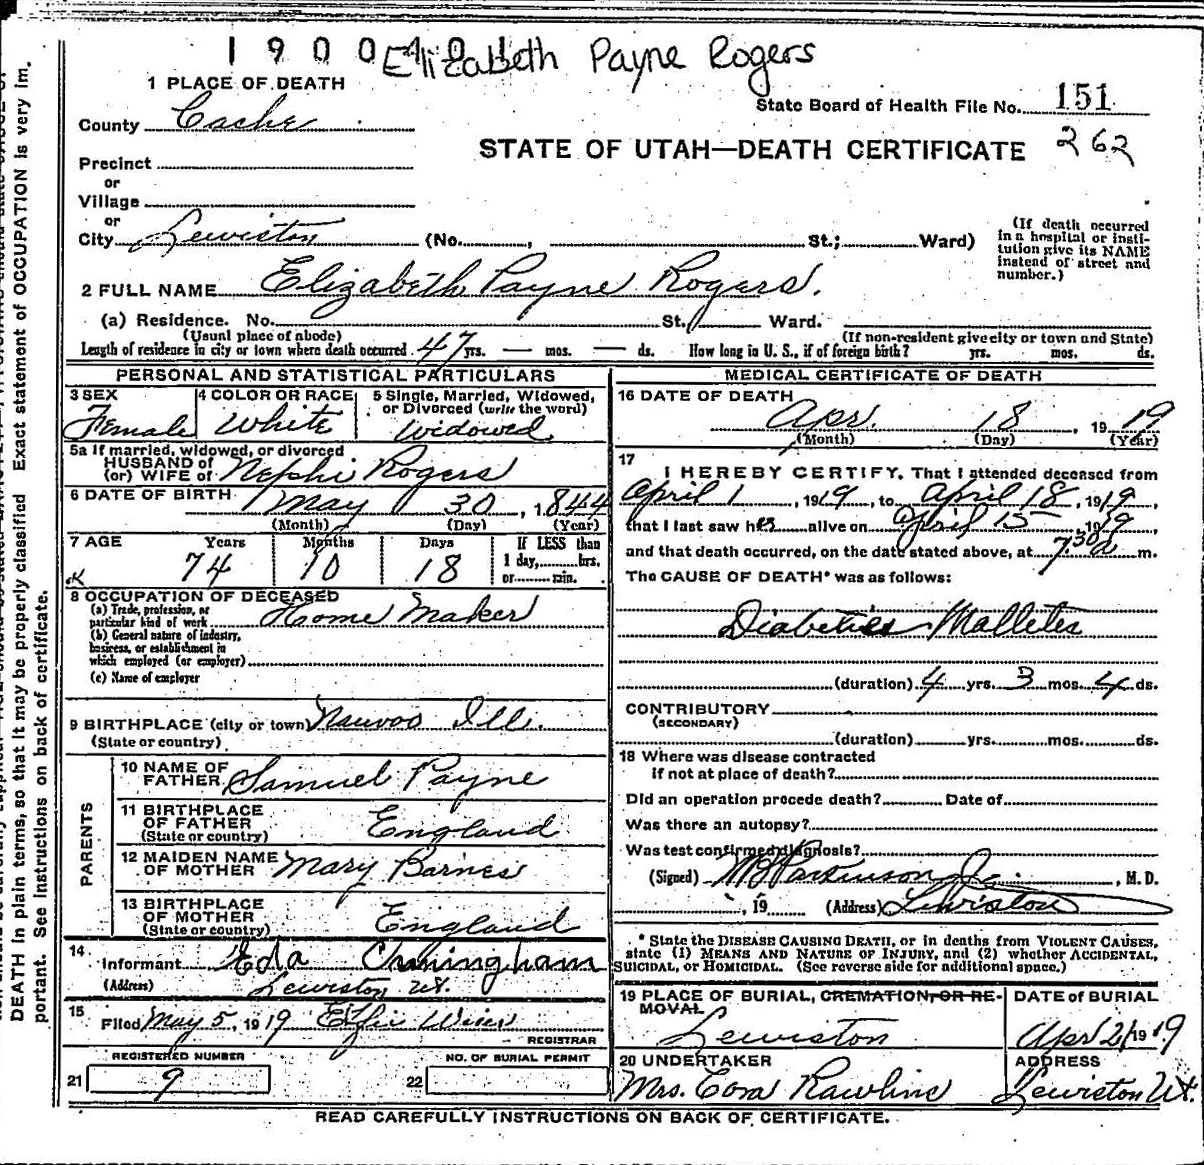 1 9 0 0 4 Elizabeth Payne Rogers
1 PLACE OF DEATH
State Board of Health File No. 151
County Cache
STATE OF UTAH—DEATH CERTIFICATE 262
Precinct
or
Village
or
City Lewiston (No. , St.; Ward)
(If death occurred in a hospital or insti-
tution give its NAME
instead of street and
number.)
2 FULL NAME Elizabeth Payne Rogers.
(a) Residence. No. St. Ward.
(Usual place of abode) (If non-resident give city or town and State)
Length of residence in city or town where death occurred 47 yrs. — mos. — ds. How long in U. S., if of foreign birth? yrs. mos. ds.
PERSONAL AND STATISTICAL PARTICULARS
3 SEX Female
4 COLOR OR RACE White
5 Single, Married, Widowed,
or Divorced (write the word)
Widowed
5a If married, widowed, or divorced
HUSBAND of
(or) WIFE of Nephi Rogers
6 DATE OF BIRTH May 30, 1844
(Month) (Day) (Year)
7 AGE Years Months Days If LESS than
1 day, hrs.
or min.
74 10 18
8 OCCUPATION OF DECEASED
(a) Trade, profession, or
particular kind of work Home Maker
(b) General nature of industry,
business, or establishment in
which employed (or employer)
(c) Name of employer
9 BIRTHPLACE (city or town) Nauvoo Ill.
(State or country)
PARENTS
10 NAME OF
FATHER Samuel Payne
11 BIRTHPLACE
OF FATHER
(State or country) England
12 MAIDEN NAME
OF MOTHER Mary Barnes
13 BIRTHPLACE
OF MOTHER
(State or country) England
14 Informant Eda Cunningham
(Address) Lewiston Ut.
15 Filed May 5, 1919 Effie
REGISTRAR
REGISTERED NUMBER
21 9
NO. OF BURIAL PERMIT
22
MEDICAL CERTIFICATE OF DEATH
16 DATE OF DEATH
Apr. 18, 1919
(Month) (Day) (Year)
17 I HEREBY CERTIFY, That I attended deceased from
April 1, 1919, to April 18, 1919,
that I last saw her alive on April 15, 1919
and that death occurred, on the date stated above, at 7.30 a m.
The CAUSE OF DEATH* was as follows:
Diabeties Malletes
(duration) 4 yrs. 3 mos. 4 ds.
CONTRIBUTORY
(SECONDARY)
(duration) yrs. mos. ds.
18 Where was disease contracted
if not at place of death?
Did an operation procede death? Date of
Was there an autopsy?
Was test confirmed diagnosis?
(Signed) Parkinson Jr., M. D.
, 19 (Address) Lewiston
* State the DISEASE CAUSING DEATH, or in deaths from VIOLENT CAUSES,
state (1) MEANS AND NATURE OF INJURY, and (2) whether ACCIDENTAL,
SUICIDAL, or HOMICIDAL. (See reverse side for additional space.)
19 PLACE OF BURIAL, CREMATION, OR RE-
MOVAL
Lewiston
DATE of BURIAL
Apr 21 1919
20 UNDERTAKER
Mrs. Cora Rawlins
ADDRESS
Lewiston Ut.
READ CAREFULLY INSTRUCTIONS ON BACK OF CERTIFICATE.
DEATH in plain terms, so that it may be properly classified Exact statement of OCCUPATION is very im.
portant. See instructions on back of certificate.